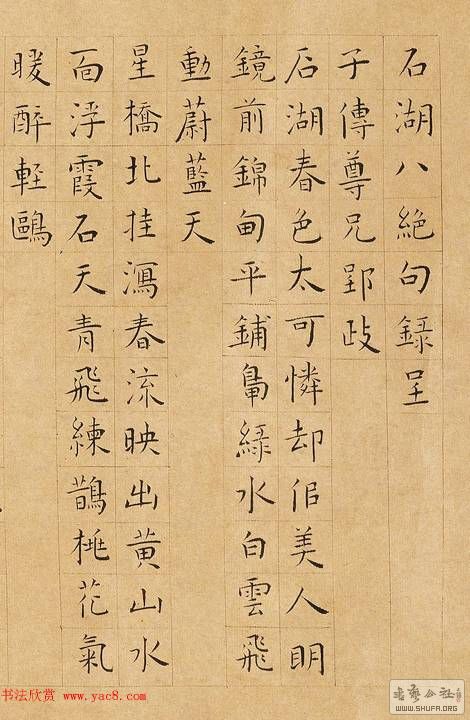 石湖八絶句録呈
子傳尊兄郢政
石湖春色太可憐却佀美人明
鏡前錦甸平鋪鳧緑水白雲飛
動蔚藍天
星橋北挂瀉春流映出黄山水
面浮霞石天青飛練鵲桃花氣
暖醉輕鷗
书法欣赏 www.yac8.com
WWW.SHUFA.ORG